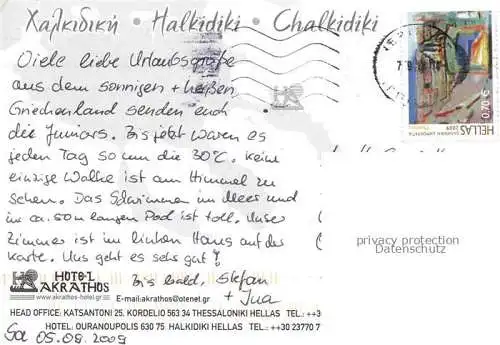 Χαλκιδική • Halkidiki • Chalkidiki
Viele liebe Urlaubsgrüße
aus dem sonnigen + heißen
Griechenland senden euch
die Juniors. Bis jetzt waren es
jeden Tag so um die 30°C. Keine
einzige Wolke ist am Himmel zu
sehen. Das Schwimmen im Meer und
im ca. 50m langen Pool ist toll. Unser
Zimmer ist im linken Haus auf der
Karte. Uns geht es sehr gut!
Bis bald, Stefan
+ Jua
HELLAS
2009
0,70 €
privacy protection
Datenschutz
HOTEL
AKRATHOS
www.akrathos-hotel.gr
E-mail:akrathos@otenet.gr
HEAD OFFICE: KATSANTONI 25, KORDELIO 563 34 THESSALONIKI HELLAS TEL.: ++3
HOTEL: OURANOUPOLIS 630 75 HALKIDIKI HELLAS TEL.: ++30 23770 7
Sa 05.09.2009